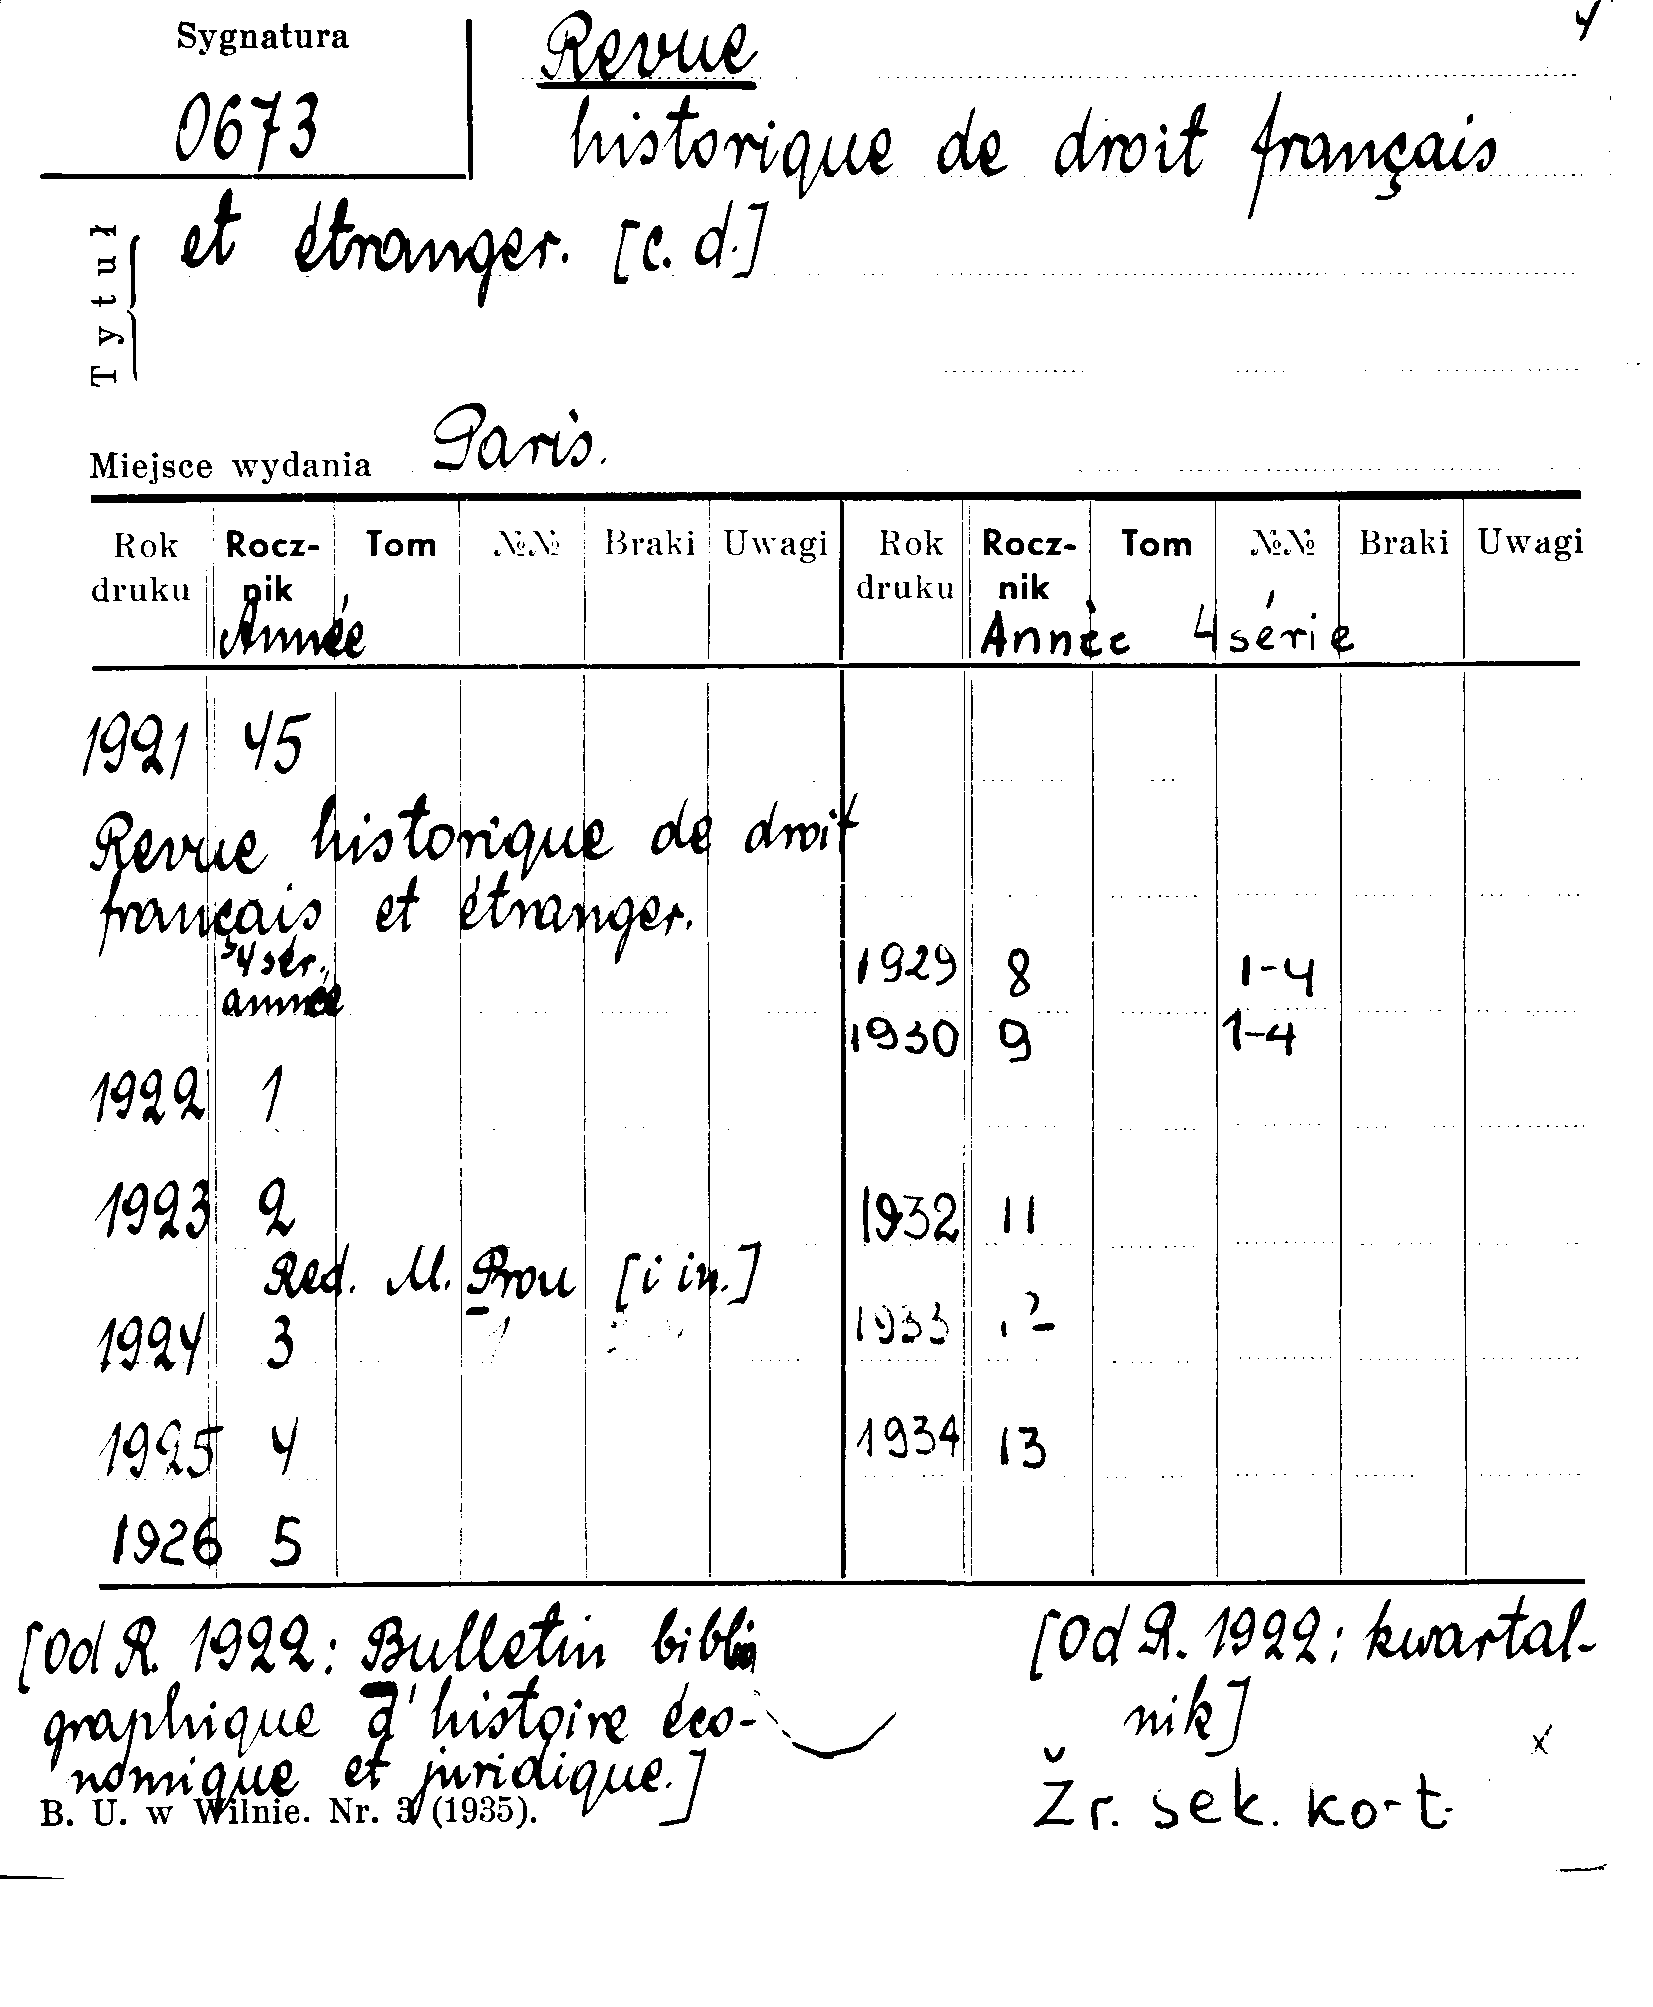 4
Sygnatura
0673
Revue
historique de droit français
et étranger. [c. d.]
Tytuł
Miejsce wydania Paris.
Rok druku Rocz-nik Tom №№ Braki Uwagi Rok druku Rocz-nik Tom №№ Braki Uwagi
Année Année 4 série
1921 45
Revue historique de droit
français et étranger.
4 sér.,
année
1929 8 1-4
1930 9 1-4
1922 1
1923 2
1932 11
Red. M. Prou [i in.]
1924 3
1933
1925 4
1934 13
1926 5
[Od R. 1922: Bulletin biblio
graphique d'histoire éco-
nomique et juridique.]
[Od R. 1922: kwartal-
nik]
x
Žr. sek. ko-t.
B. U. w Wilnie. Nr. 3 (1935).